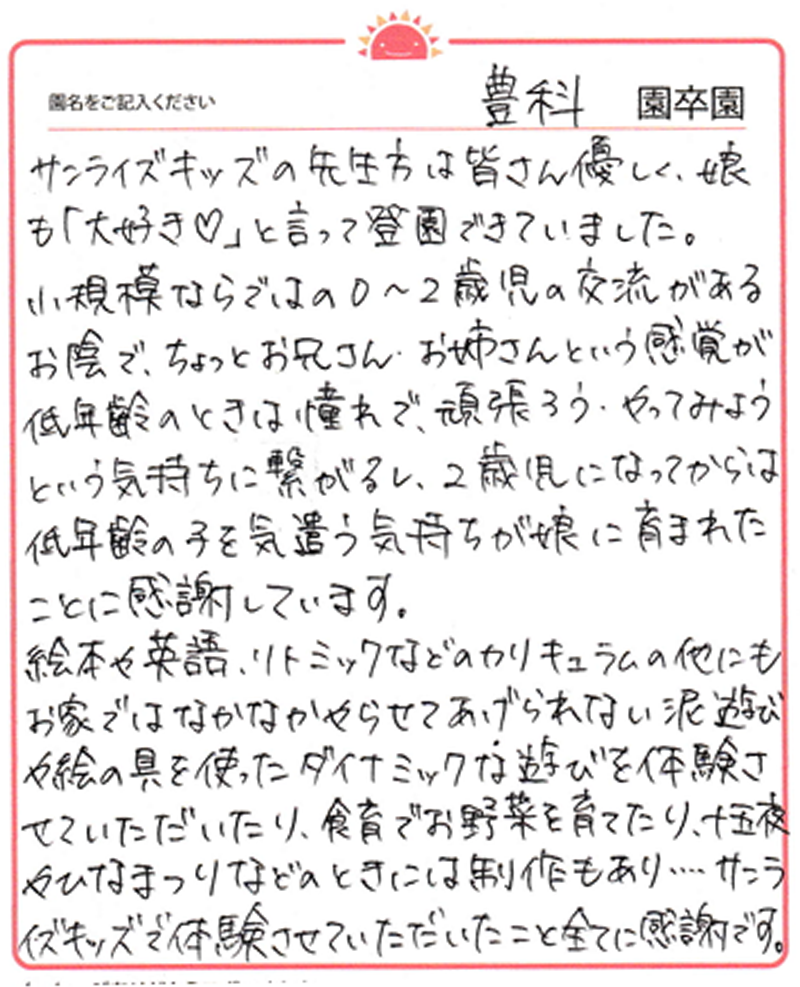 園名をご記入ください 豊科 園卒園
サンライズキッズの先生方は皆さん優しく、娘
も「大好き♡」と言って登園できていました。
小規模ならではの0〜2歳児の交流がある
お陰で、ちょっとお兄さん・お姉さんという感覚が
低年齢のときは憧れで、頑張ろう・やってみよう
という気持ちに繋がるし、2歳児になってからは
低年齢の子を気遣う気持ちが娘に育まれた
ことに感謝しています。
絵本や英語、リトミックなどのカリキュラムの他にも
お家ではなかなかやらせてあげられない泥遊び
や絵の具を使ったダイナミックな遊びを体験さ
せていただいたり、食育でお野菜を育てたり、十五夜
やひなまつりなどのときには制作もあり‥‥サンラ
イズキッズで体験させていただいたこと全てに感謝です。